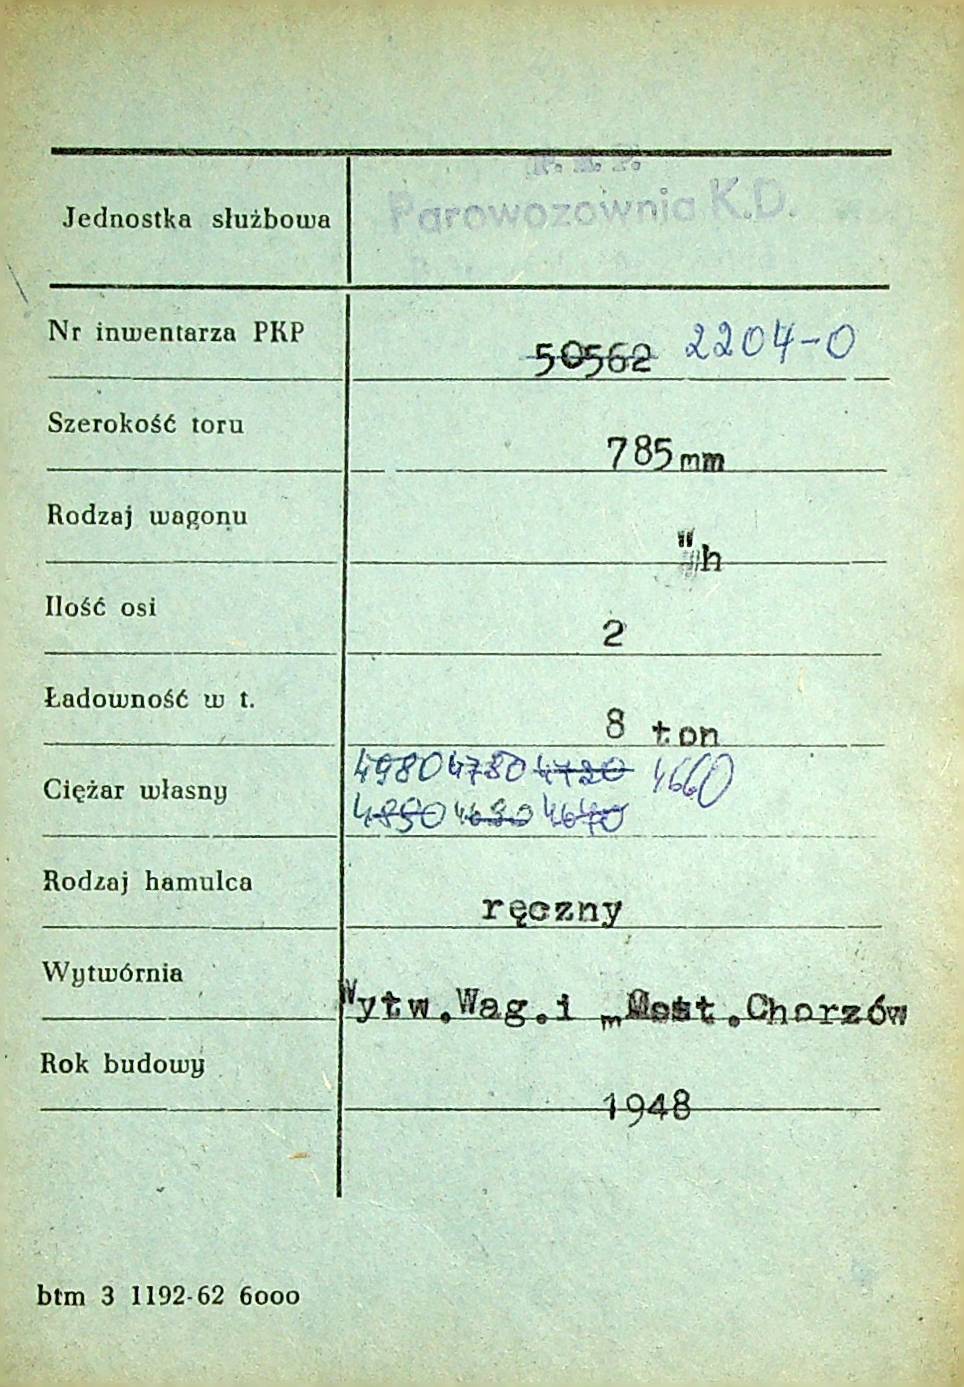 P. K. P.
Jednostka służbowa Parowozownia K.D.
Nr inwentarza PKP 50562 2204-0
Szerokość toru 785mm
Rodzaj wagonu Wh
Ilość osi 2
Ładowność w t. 8 ton
4980 4780 4720 4660
Ciężar własny
4850 4680 4670
Rodzaj hamulca ręczny
Wytwórnia Wytw.Wag.i Most.Chorzów
Rok budowy 1948
btm 3 1192-62 6000